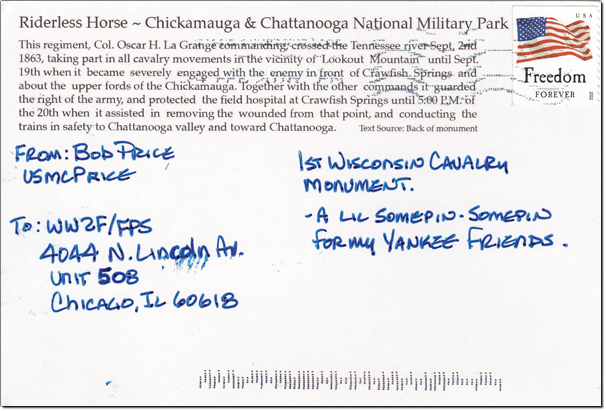 Riderless Horse ~ Chickamauga & Chattanooga National Military Park
This regiment, Col. Oscar H. La Grange commanding, crossed the Tennessee river Sept. 2nd
1863, taking part in all cavalry movements in the vicinity of Lookout Mountain until Sept.
19th when it became severely engaged with the enemy in front of Crawfish Springs and
about the upper fords of the Chickamauga. Together with the other commands it guarded
the right of the army, and protected the field hospital at Crawfish Springs until 5:00 P.M. of
the 20th when it assisted in removing the wounded from that point, and conducting the
trains in safety to Chattanooga valley and toward Chattanooga. Text Source: Back of monument
USA
Freedom
FOREVER
From: Bob Price
USMCPRICE
To: WW2F/FPS
4044 N. Lincoln Av.
Unit 508
Chicago, IL 60618
1st Wisconsin Cavalry
Monument.
- A Lil Somepin-Somepin
for my Yankee Friends.